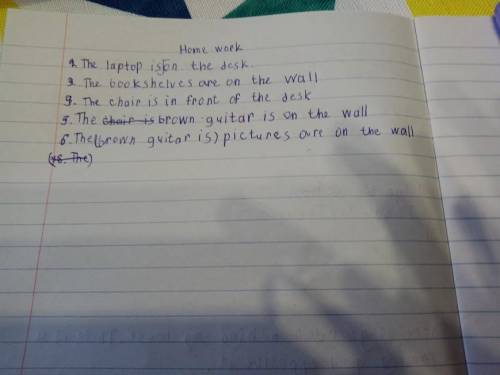 Home work
2. The laptop is on the desk.
3. The bookshelves are on the wall
9. The chair is in front of the desk
5. The chair is brown guitar is on the wall
6. The (brown guitar is) pictures are on the wall
(6. The)